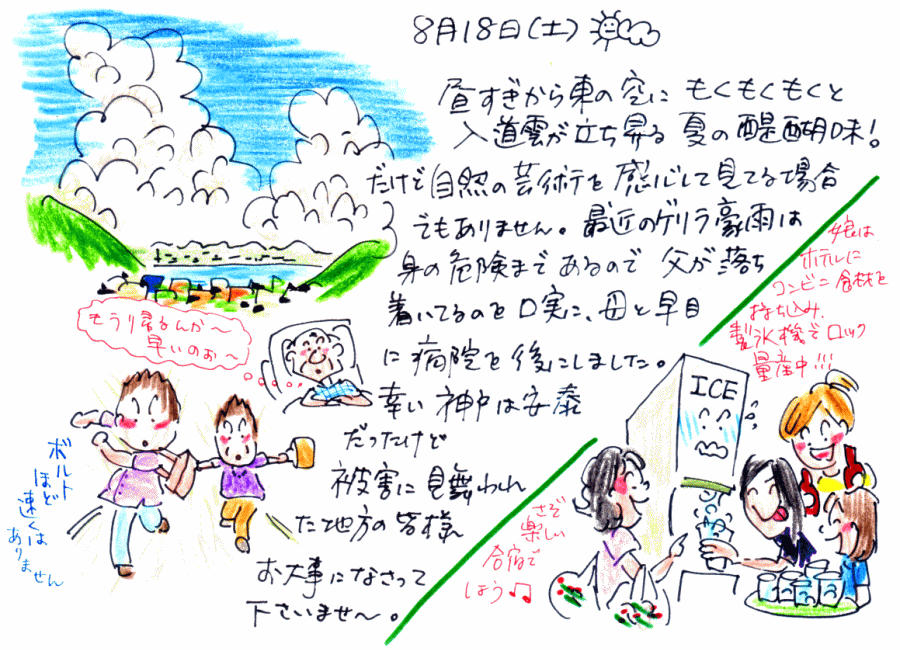 8月18日(土)
昼すぎから東の空に もくもくもくと
入道雲が立ち昇る 夏の醍醐味!
だけど自然の芸術を感心して見てる場合
でもありません。最近のゲリラ豪雨は
身の危険まであるので 父が落ち
着いてるのを口実に、母と早目
に病院を後にしました。
幸い神戸は安泰
だったけど
被害に見舞われ
た地方の皆様
お大事になさって
下さいませ〜。
もうり帰るんか〜
早いのぉ〜
ボルト
ほど
速くは
ありません
娘は
ホテルに
コンビニ食材を
持ち込み、
製氷機でロック
量産中!!!
ICE
さぞ
楽しい
合宿で
しょう♫